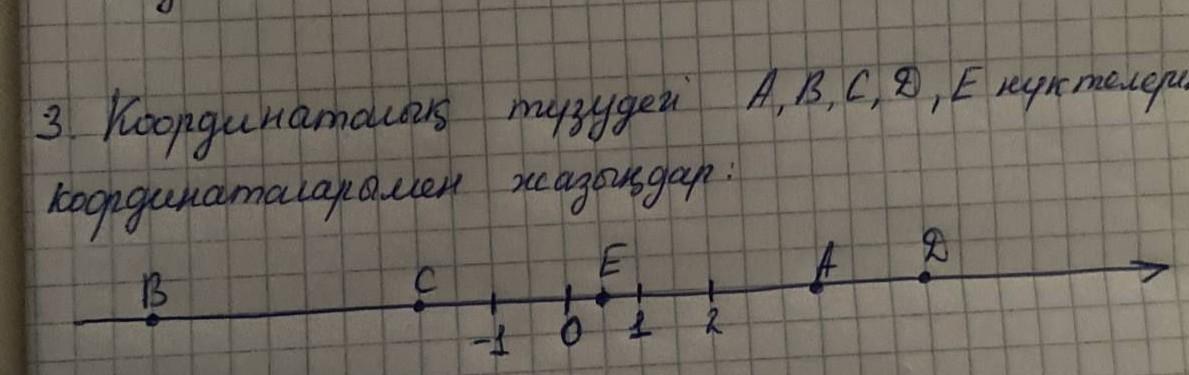 3. Координаталық түзудегі A, B, C, D, E нүктелерін
координаталарымен жазыңдар:
B C E A D
-1 0 1 2